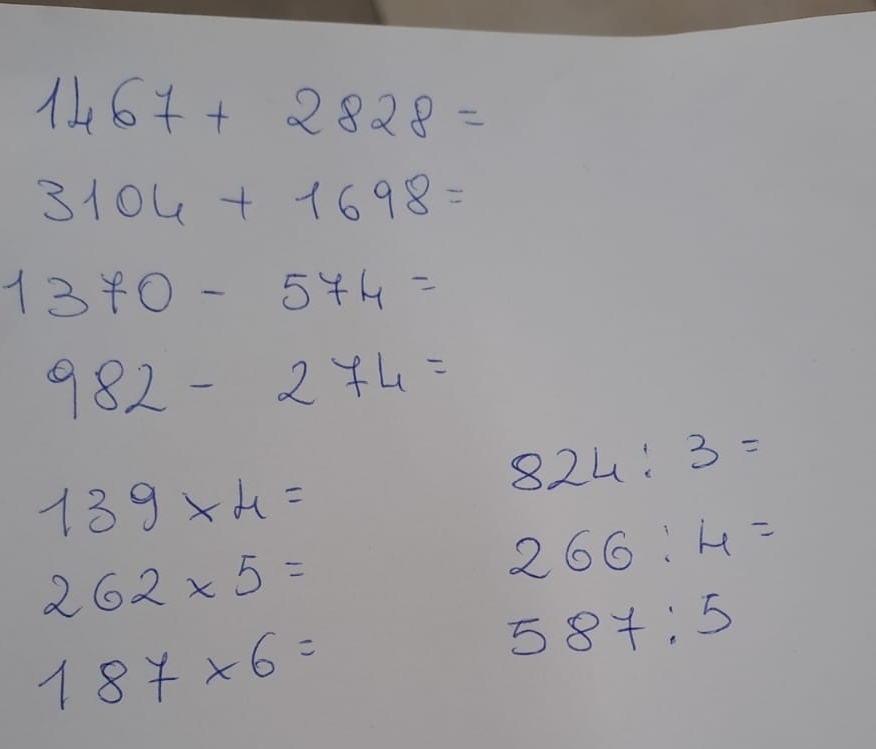 1467 + 2828 =
3104 + 1698 =
1370 - 574 =
982 - 274 =
139 x 4 =
262 x 5 =
187 x 6 =
824 : 3 =
266 : 4 =
587 : 5